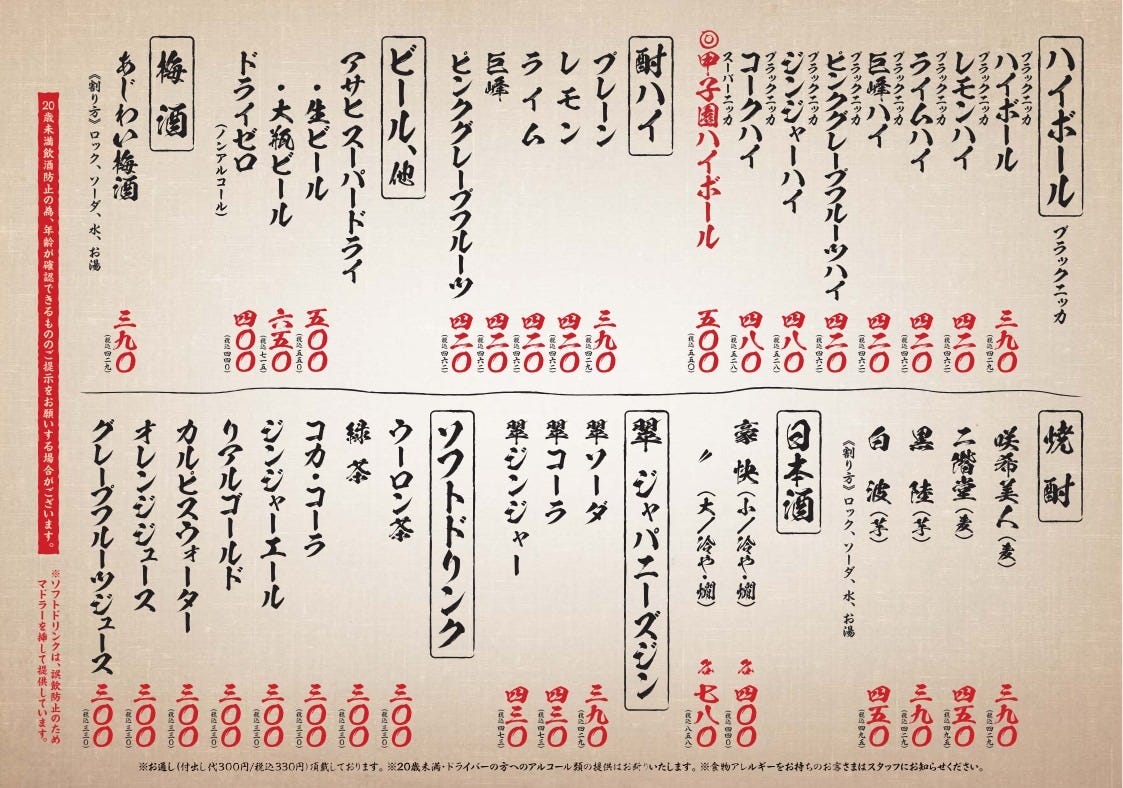 ハイボール ブラックニッカ
ブラックニッカ
ハイボール 三九〇 (税込四二九)
ブラックニッカ
レモンハイ 四二〇 (税込四六二)
ブラックニッカ
ライムハイ 四二〇 (税込四六二)
ブラックニッカ
巨峰ハイ 四二〇 (税込四六二)
ブラックニッカ
ピンクグレープフルーツハイ 四二〇 (税込四六二)
ブラックニッカ
ジンジャーハイ 四八〇 (税込五二八)
ブラックニッカ
コークハイ 四八〇 (税込五二八)
スーパーニッカ
◎甲子園ハイボール 五〇〇 (税込五五〇)
酎ハイ
プレーン 三九〇 (税込四二九)
レモン 四二〇 (税込四六二)
ライム 四二〇 (税込四六二)
巨峰 四二〇 (税込四六二)
ピンクグレープフルーツ 四二〇 (税込四六二)
ビール、他
アサヒスーパードライ
・生ビール 五〇〇 (税込五五〇)
・大瓶ビール 六五〇 (税込七一五)
ドライゼロ 四〇〇 (税込四四〇)
(ノンアルコール)
梅酒
あじわい梅酒 三九〇 (税込四二九)
《割り方》ロック、ソーダ、水、お湯
焼酎
咲希美人(麦) 三九〇 (税込四二九)
二階堂(麦) 四五〇 (税込四九五)
黒陸(芋) 三九〇 (税込四二九)
白波(芋) 四五〇 (税込四九五)
《割り方》ロック、ソーダ、水、お湯
日本酒
豪快(小/冷や・燗) 各四〇〇 (税込四四〇)
〃(大/冷や・燗) 各七八〇 (税込八五八)
翠 ジャパニーズジン
翠ソーダ 三九〇 (税込四二九)
翠コーラ 四三〇 (税込四七三)
翠ジンジャー 四三〇 (税込四七三)
ソフトドリンク
ウーロン茶 三〇〇 (税込三三〇)
緑茶 三〇〇 (税込三三〇)
コカ・コーラ 三〇〇 (税込三三〇)
ジンジャーエール 三〇〇 (税込三三〇)
リアルゴールド 三〇〇 (税込三三〇)
カルピスウォーター 三〇〇 (税込三三〇)
オレンジジュース 三〇〇 (税込三三〇)
グレープフルーツジュース 三〇〇 (税込三三〇)
20歳未満飲酒防止の為、年齢が確認できるもののご提示をお願いする場合がございます。
※ソフトドリンクは、誤飲防止のため
マドラーを挿して提供しています。
※お通し(付出し代300円/税込330円)頂戴しております。※20歳未満・ドライバーの方へのアルコール類の提供はお断りいたします。※食物アレルギーをお持ちのお客さまはスタッフにお知らせください。